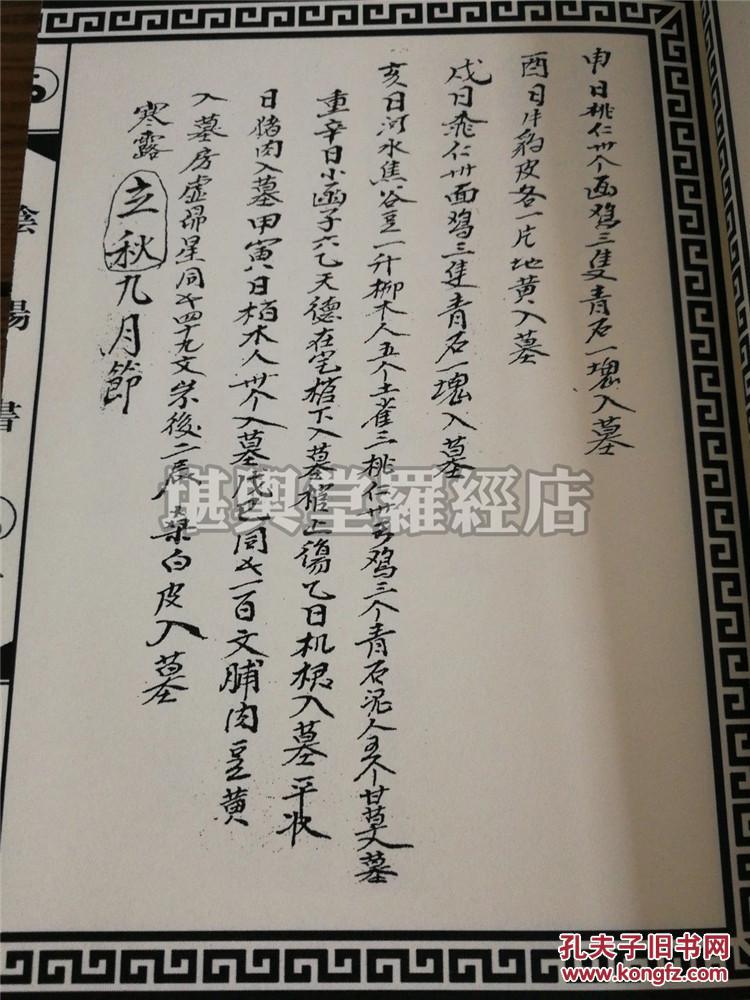 申日桃仁卅个面鸡三隻青石一塊入墓
酉日牛豹皮各一片地黄入墓
戌日桃仁卅面鸡三隻青石一塊入墓
亥日河水焦谷豆一升柳木人五个土雀三桃仁卅面鸡三个青石泥人五个甘草入墓
重辛日小函子六乙天德在宅棺下入墓棺上傷乙日机根入墓平收
日猪肉入墓甲寅日柏木人卅个入墓戊己同 一百文脯肉豆黄
入墓房虚昴星同 四十九文柴後二辰 桑白皮入墓
寒露 立秋九月節
陰陽書
堪輿堂羅經店
孔夫子旧书网
www.kongfz.com